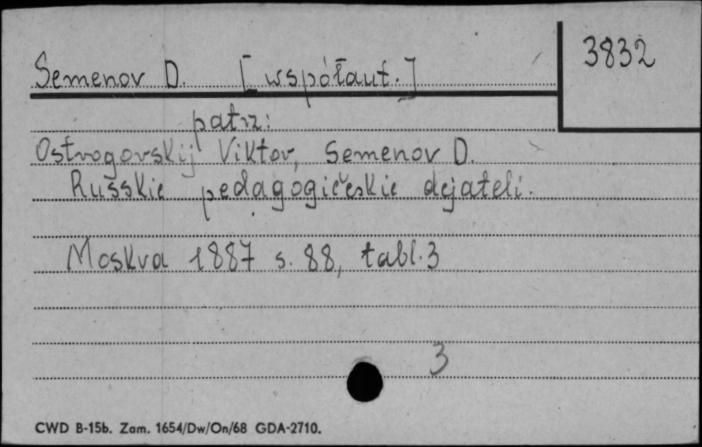 3832
Semenov D. [współaut.]
patrz:
Ostrogorskij Viktor, Semenov D.
Russkie pedagogičeskie dejateli.
Moskva 1887 s. 88, tabl. 3
3
CWD B-15b. Zam. 1654/Dw/On/68 GDA-2710.